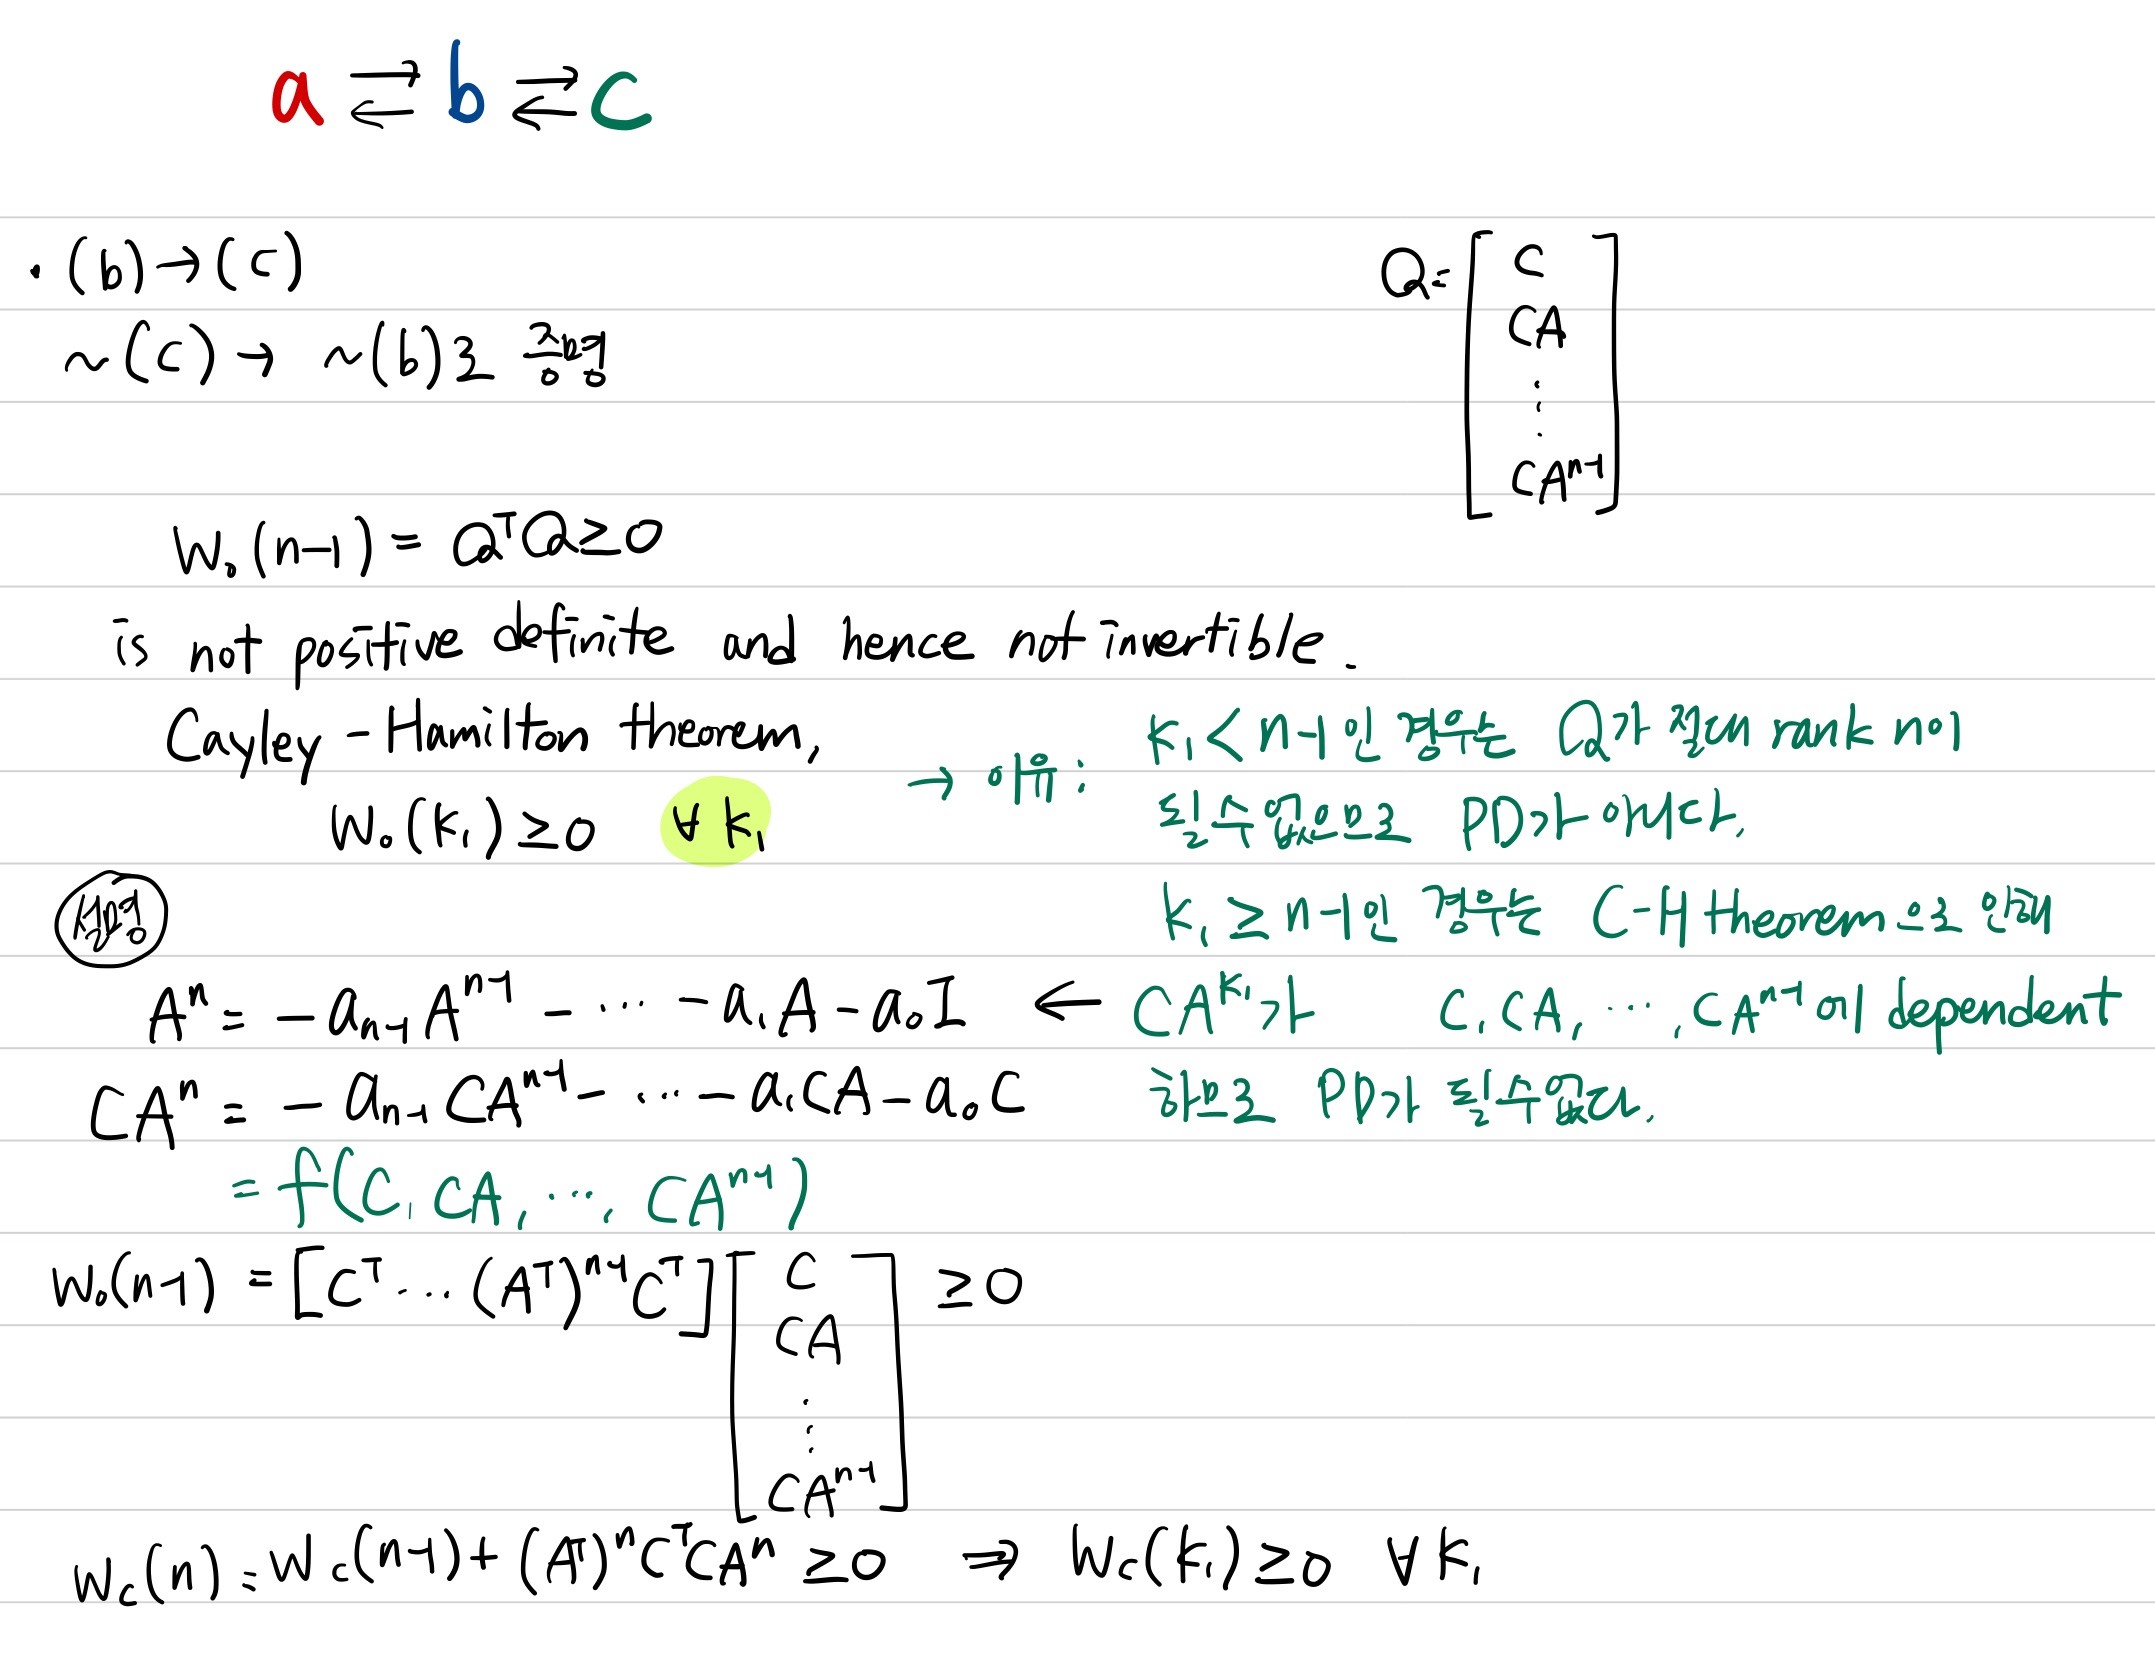 a ⇄ b ⇄ c
· (b) → (c)
~(c) → ~(b)로 증명
Q = [ C
CA
⋮
CA^{n-1} ]
W_o(n-1) = Q^T Q ≥ 0
is not positive definite and hence not invertible.
Cayley-Hamilton theorem,
W_o(k_1) ≥ 0 ∀ k_1
→ 이유:
k_1 < n-1인 경우는 Q가 절대 rank n이
될 수 없으므로 PD가 아니다.
k_1 ≥ n-1인 경우는 C-H theorem으로 인해
CA^{k_1}가 C, CA, ..., CA^{n-1}에 dependent
하므로 PD가 될 수 없다.
설명
A^n = -a_{n-1}A^{n-1} - ... - a_1A - a_0I ←
CA^n = -a_{n-1}CA^{n-1} - ... - a_1CA - a_0C
= f(C, CA, ..., CA^{n-1})
W_o(n-1) = [C^T ... (A^T)^{n-1}C^T] [ C
CA
⋮
CA^{n-1} ] ≥ 0
W_c(n) = W_c(n-1) + (A^T)^n C^T C A^n ≥ 0 ⇒ W_c(k_1) ≥ 0 ∀ k_1